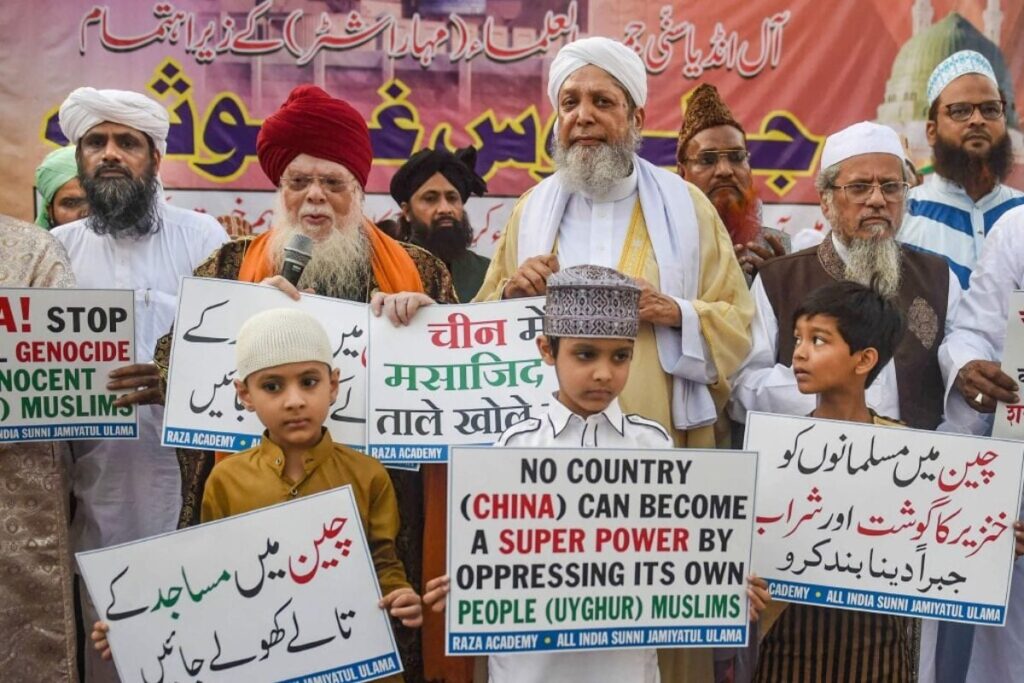 آل انڈیا سنّی جم العلماء (مہاراشٹر) کے زیر اہتمام
جلوس غوثیہ
A! STOP
GENOCIDE
NOCENT
) MUSLIMS
SUNNI JAMIYATUL ULAMA
کے
میں
جائیں
RAZA ACADEMY •
चीन में
मसाजिद
ताले खोले
RAZA ACADEMY •
چین میں مساجد کے
تالے کھولے جائیں
JAMIYATUL ULAMA
NO COUNTRY
(CHINA) CAN BECOME
A SUPER POWER BY
OPPRESSING ITS OWN
PEOPLE (UYGHUR) MUSLIMS
RAZA ACADEMY • ALL INDIA SUNNI JAMIYATUL ULAMA
چین میں مسلمانوں کو
خنزیر کا گوشت اور شراب
جبراً دینا بند کرو
ACADEMY • ALL INDIA SUNNI JAMIYATUL ULAMA